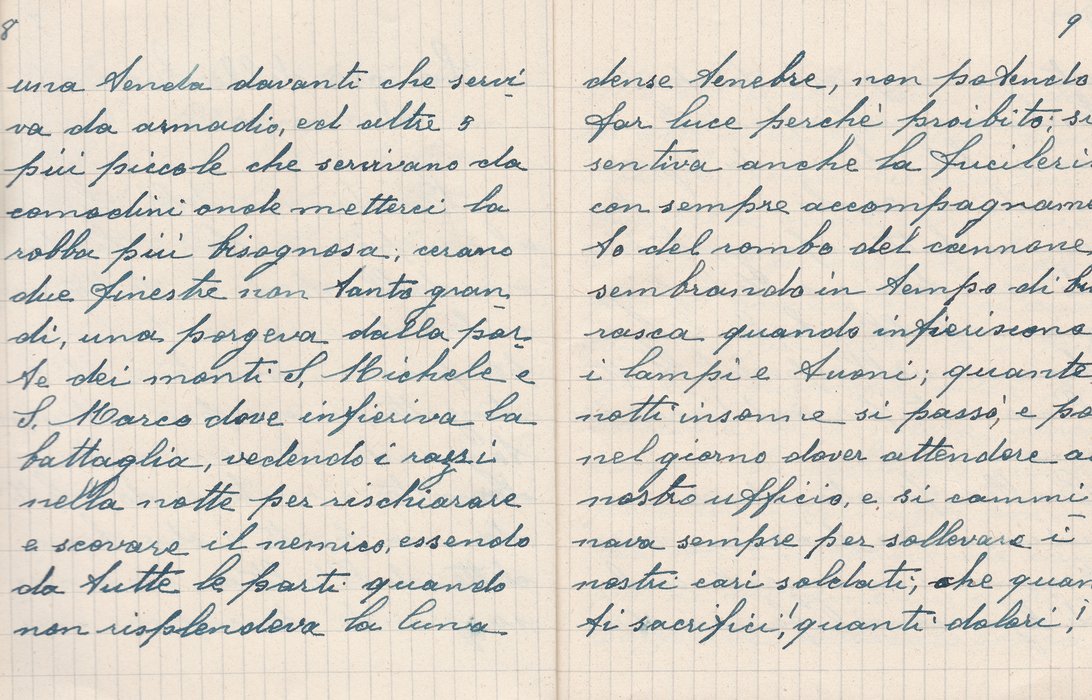 8
una tenda davanti che servi-
va da armadio, ed altre 5
più piccole che servivano da
comodini onde metterci la
robba più bisognosa; cerano
due finestre non tanto gran-
di, una porgeva dalla par-
te dei monti S. Michele e
S. Marco dove infieriva la
battaglia, vedendo i razzi
nella notte per rischiarare
e scovare il nemico, essendo
da tutte le parti quando
non risplendeva la luna
9
dense tenebre, non potendo
far luce perchè proibito; si
sentiva anche la fucileri
con sempre accompagname
to del rombo del cannone,
sembrando in tempo di bu
rasca quando infieriscono
i lampi e tuoni; quante
notti insonne si passò, e po
nel giorno dover attendere a
nostro ufficio, e si cammi-
nava sempre per sollevare i
nostri cari soldati; che quan
ti sacrifici! quanti dolori!